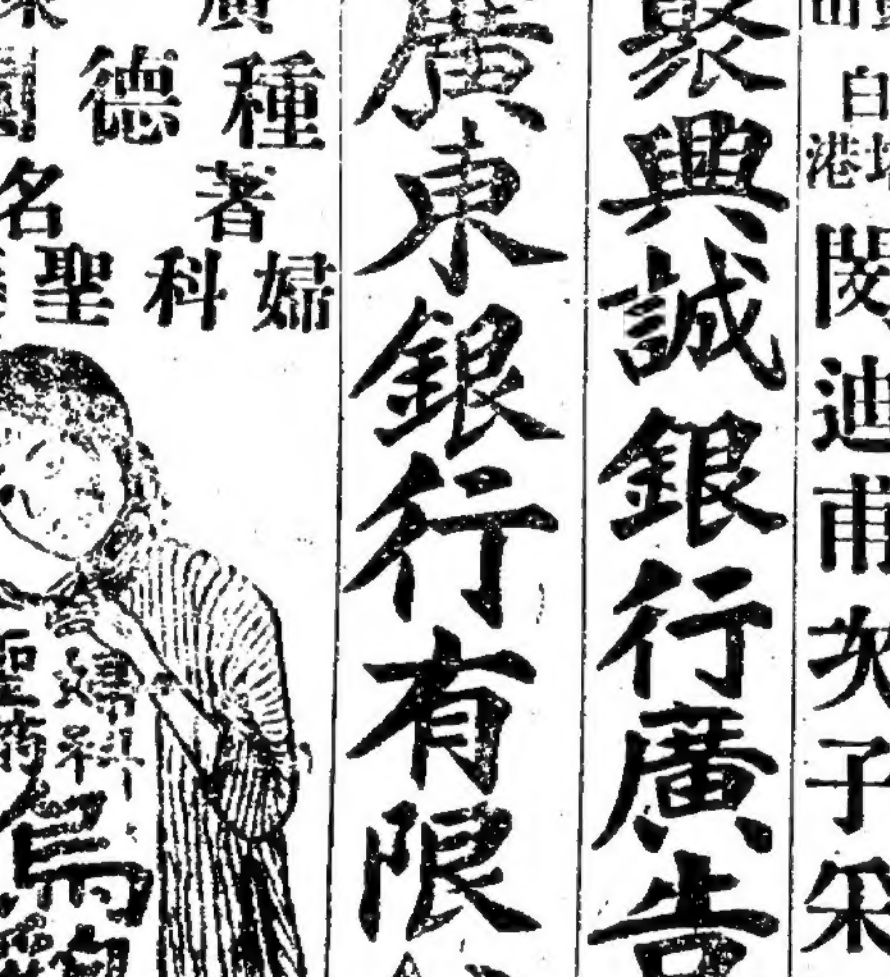 自
港
閔迪甫次子采
聚興誠銀行廣告
廣東銀行有限
廣
種德園
著名
婦科聖
婦科
聖藥
烏